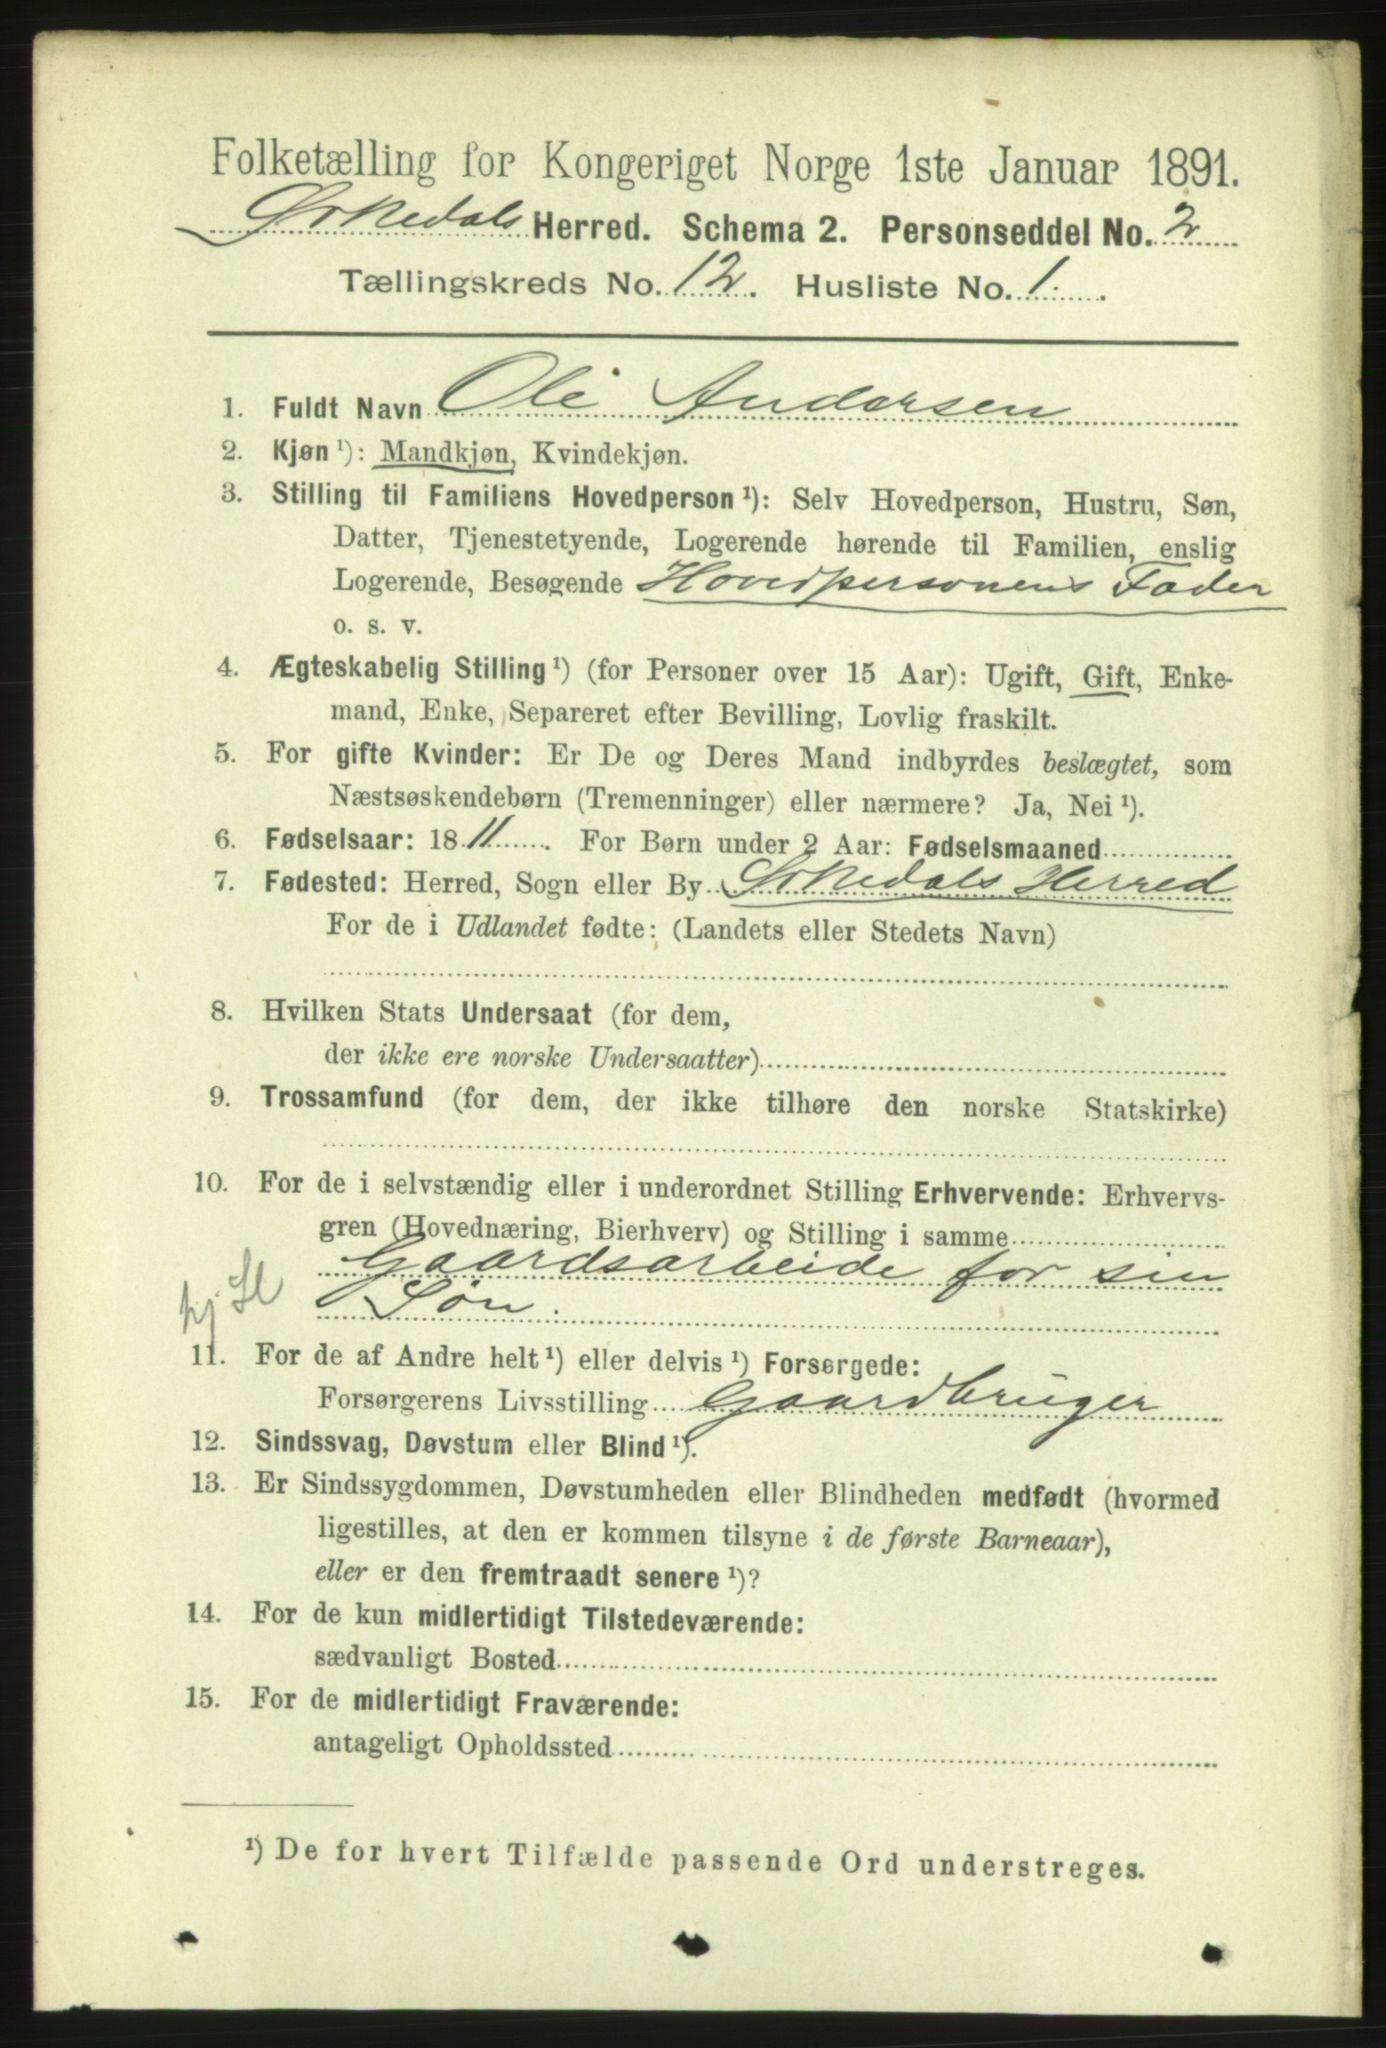 Folketælling for Kongeriget Norge 1ste Januar 1891.
Ørkedals Herred. Schema 2. Personseddel No. 2
Tællingskreds No. 12. Husliste No. 1.
1. Fuldt Navn Ole Andersen
2. Kjøn ¹): Mandkjøn, Kvindekjøn.
3. Stilling til Familiens Hovedperson ¹): Selv Hovedperson, Hustru, Søn,
Datter, Tjenestetyende, Logerende hørende til Familien, enslig
Logerende, Besøgende Hovedpersonens Fader
o. s. v.
4. Ægteskabelig Stilling ¹) (for Personer over 15 Aar): Ugift, Gift, Enke-
mand, Enke, Separeret efter Bevilling, Lovlig fraskilt.
5. For gifte Kvinder: Er De og Deres Mand indbyrdes beslægtet, som
Næstsøskendebørn (Tremenninger) eller nærmere? Ja, Nei ¹).
6. Fødselsaar: 1811. For Børn under 2 Aar: Fødselsmaaned
7. Fødested: Herred, Sogn eller By Ørkedals Herred
For de i Udlandet fødte: (Landets eller Stedets Navn)
8. Hvilken Stats Undersaat (for dem,
der ikke ere norske Undersaatter)
9. Trossamfund (for dem, der ikke tilhøre den norske Statskirke)
10. For de i selvstændig eller i underordnet Stilling Erhvervende: Erhvervs-
gren (Hovednæring, Bierhverv) og Stilling i samme
Gaardsarbeide for sin
Søn.
11. For de af Andre helt ¹) eller delvis ¹) Forsørgede:
Forsørgerens Livsstilling Gaardbruger
12. Sindssvag, Døvstum eller Blind ¹).
13. Er Sindssygdommen, Døvstumheden eller Blindheden medfødt (hvormed
ligestilles, at den er kommen tilsyne i de første Barneaar),
eller er den fremtraadt senere ¹)?
14. For de kun midlertidigt Tilstedeværende:
sædvanligt Bosted
15. For de midlertidigt Fraværende:
antageligt Opholdssted
¹) De for hvert Tilfælde passende Ord understreges.